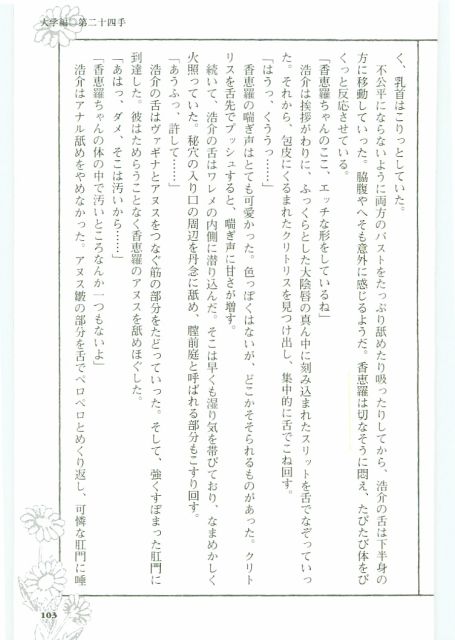 大学編 第二十四手
く、乳首はこりっとしていた。
不公平にならないように両方のバストをたっぷり舐めたり吸ったりしてから、浩介の舌は下半身の
方に移動していった。脇腹やへそも意外に感じるようだ。香恵羅は切なそうに悶え、たびたび体をび
くっと反応させている。
「香恵羅ちゃんのここ、エッチな形をしているね」
浩介は挨拶がわりに、ふっくらとした大陰唇の真ん中に刻み込まれたスリットを舌でなぞっていっ
た。それから、包皮にくるまれたクリトリスを見つけ出し、集中的に舌でこね回す。
「はうっ、くううっ……」
香恵羅の喘ぎ声はとても可愛かった。色っぽくはないが、どこかそそられるものがあった。クリト
リスを舌先でプッシュすると、喘ぎ声に甘さが増す。
続いて、浩介の舌はワレメの内側に潜り込んだ。そこは早くも湿り気を帯びており、なまめかしく
火照っていた。秘穴の入り口の周辺を丹念に舐め、膣前庭と呼ばれる部分もこすり回す。
「あうふっ、許して……」
浩介の舌はヴァギナとアヌスをつなぐ筋の部分をたどっていった。そして、強くすぼまった肛門に
到達した。彼はためらうことなく香恵羅のアヌスを舐めほぐした。
「あはっ、ダメ、そこは汚いから……」
「香恵羅ちゃんの体の中で汚いところなんか一つもないよ」
浩介はアナル舐めをやめなかった。アヌス皺の部分を舌でペロペロとめくり返し、可憐な肛門に唾
103